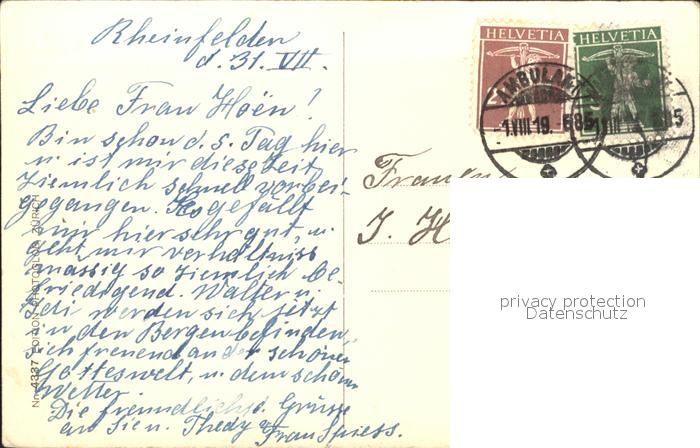 Rheinfelden
d. 31. VII.
Liebe Frau Hoën!
Bin schon d. 5. Tag hier
u. ist mir diese Zeit
ziemlich schnell vorbei-
gegangen. Es gefällt
mir hier sehr gut, u.
geht mir verhältniss
mässig so ziemlich be-
friedigend. Walter u.
Edi werden sich jetzt
in den Bergen befinden,
sich freuend an der schönen
Gotteswelt, u. dem schönen
Wetter.
Die freundlichst. Grüsse
an Sie u. Thedy
Frau Spiess.
No 4337 EDITION PHOTOGLOB ZÜRICH
HELVETIA HELVETIA
AMBULANT
-1.VIII 19.-
Frau
J. H
privacy protection
Datenschutz